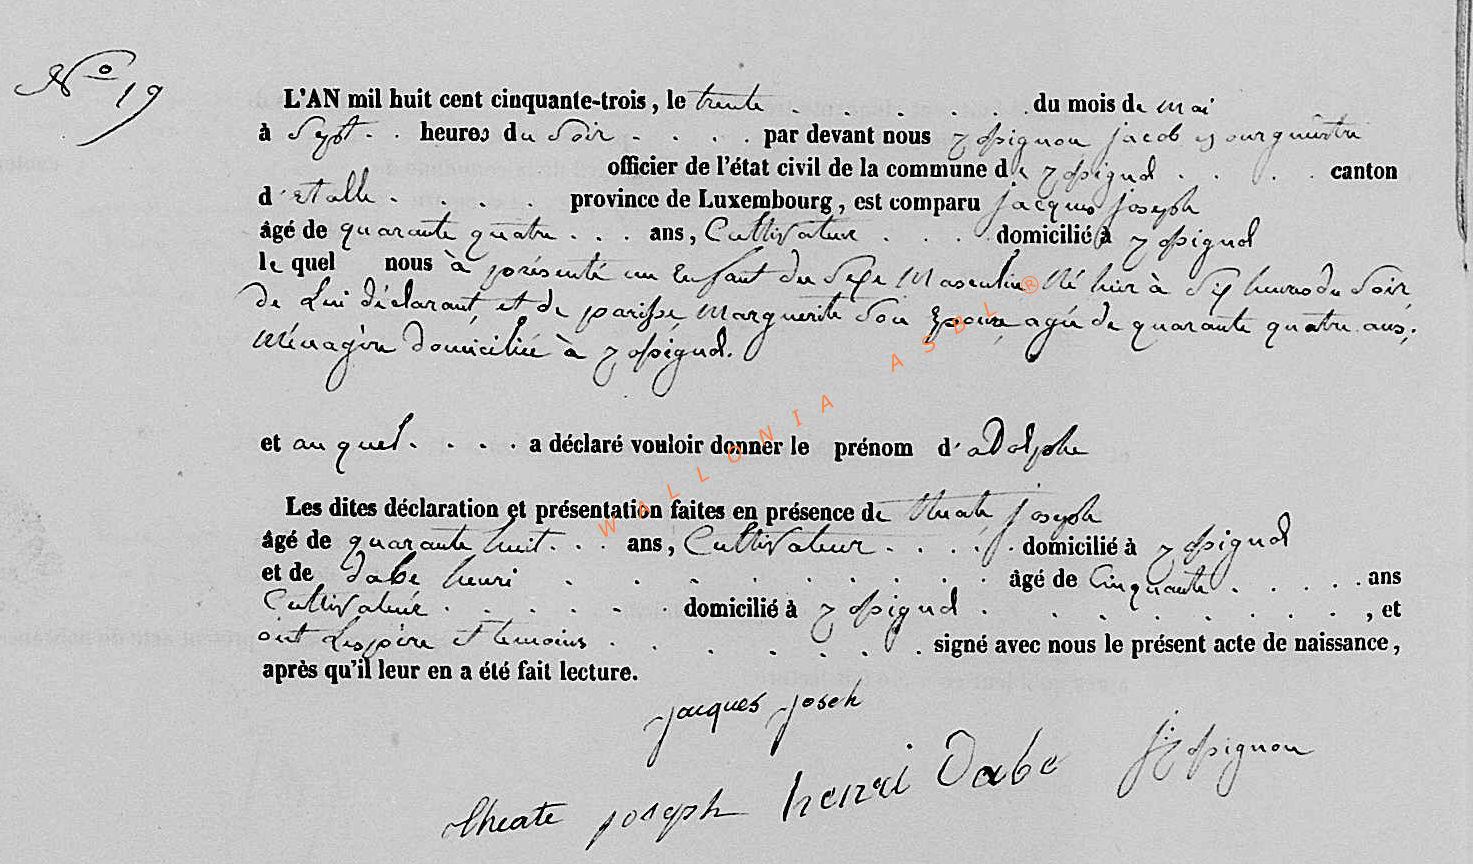 No 19
L'AN mil huit cent cinquante-trois, le trente . . . . . . du mois de mai
à Sept . . heures du Soir . . . . par devant nous jacob
officier de l'état civil de la commune de . . . . canton
d'Etalle . . . . province de Luxembourg, est comparu jacques joseph
âgé de quarante quatre . . . ans, Cultivateur . . . domicilié à
le quel nous à présenté un Enfant du Sexe Masculin Né hier à Six heures du Soir
de Lui déclarant, et de parisse Marguerite Son Epouse agée de quarante quatre ans,
Ménagère domiciliée à
et auquel . . . . a déclaré vouloir donner le prénom d'aDolphe
Les dites déclaration et présentation faites en présence de theate joseph
âgé de quarante huit . . . ans, Cultivateur . . . . domicilié à
et de Dabe henri . . . . . . . . . âgé de Cinquante . . . . ans
Cultivateur . . . . . . domicilié à . . . . . . . , et
ont Les père et temoins . . . . . . . signé avec nous le présent acte de naissance,
après qu'il leur en a été fait lecture.
jacques joseh
theate joseph henri Dabe
WALLONIA ASBL ®